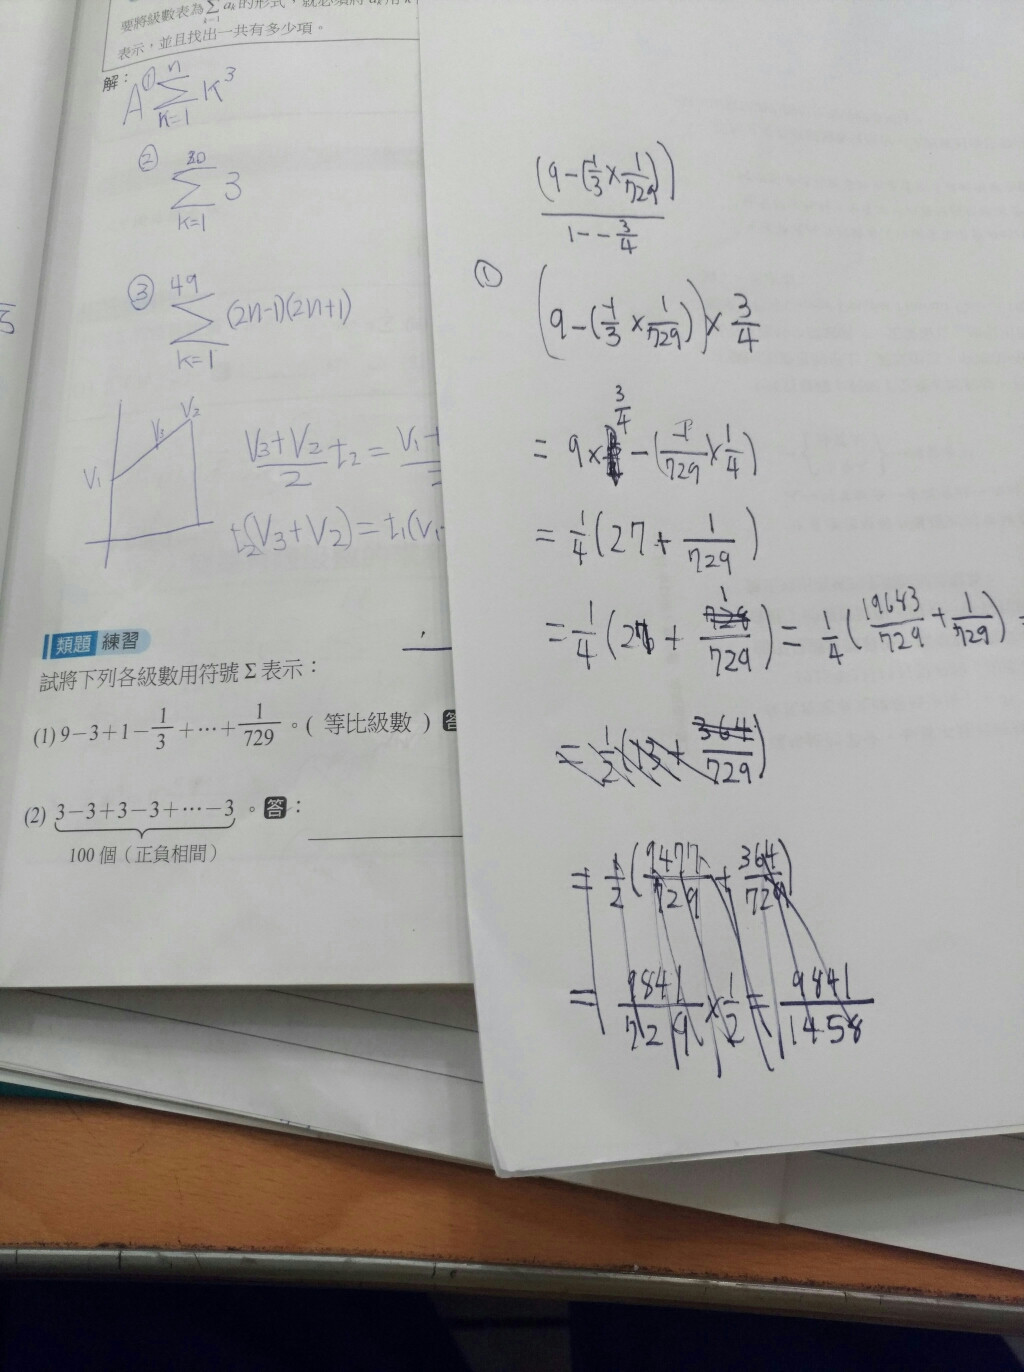 要將級數表為 Σ aₖ 的形式，就必須將 aₖ 用 k
表示，並且找出一共有多少項。
解：
A ① n Σ k=1 K³
② 30 Σ k=1 3
③ 49 Σ k=1 (2n-1)(2n+1)
V₁ V₃ V₂
(V₃+V₂)/2 t₂ = V₁+
t₂(V₃+V₂)=t₁(V₁+
類題 練習
試將下列各級數用符號 Σ 表示：
(1) 9－3＋1－1/3＋⋯＋1/729。( 等比級數 ) 答
(2) 3－3＋3－3＋⋯－3 。答：
100 個（正負相間）
(9-(-1/3×1/729))/(1--3/4)
①
(9-(-1/3×1/729))×3/4
= 9×3/4-(-1/729×1/4)
= 1/4(27+1/729)
= 1/4(27+1/729) = 1/4(19643/729+1/729) =
= 1/2(13+364/729)
= 1/2(9477/729+364/729)
= 9841/729×1/2=9841/1458